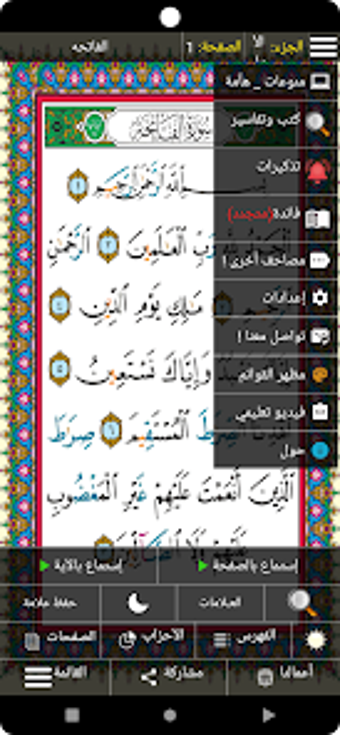 الجزء: الا الصفحة: 1 الفاتحه
منوعات _ هامة
كتب وتفاسير
تذكيرات
فائدة(متجدد)
مصاحف أخرى!
إعدادات
تواصل معنا !
مظهر القوائم
فيديو تعليمي
حول
سورة الفاتحة
ٱللَّهِ ٱلرَّحْمَٰنِ ٱلرَّحِيمِ ١
رَبِّ ٱلْعَٰلَمِينَ ٢ ٱلرَّحْمَٰنِ
مَٰلِكِ يَوْمِ ٱلدِّينِ ٤
وَإِيَّاكَ نَسْتَعِينُ ٥
ٱلصِّرَٰطَ ٱلْمُسْتَقِيمَ ٦ صِرَٰطَ
ٱلَّذِينَ أَنْعَمْتَ عَلَيْهِمْ غَيْرِ ٱلْمَغْضُوبِ
عَلَيْهِمْ وَلَا ٱلضَّآلِّينَ
إستماع بالصفحة إستماع بالآية
العلامات حفظ علامة
الفهرس الأحزاب الصفحات
أعمالنا مشاركة القائمة